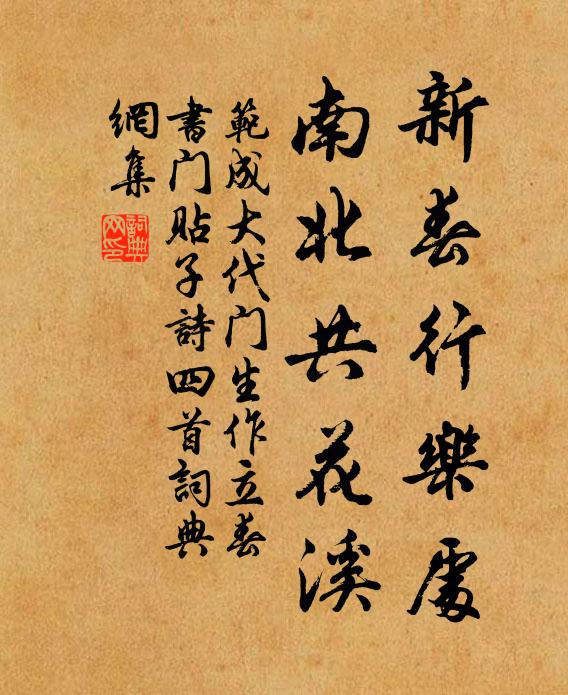 新春行樂處
南北共花溪
範成大代门生作立春
書门貼子詩四首詞典
網集
詞典网印